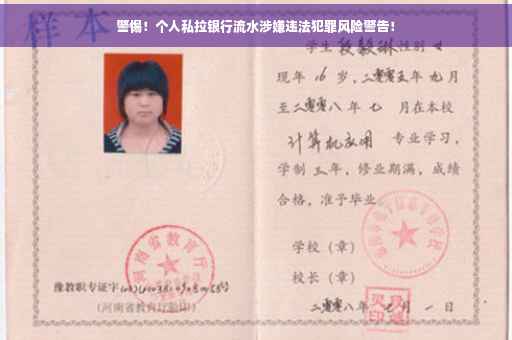 警惕！个人私拉银行流水涉嫌违法犯罪风险警告！
样本
学生 段毅琳 性别 女
现年 16 岁，二零零五年 九 月
至二零零八年 七 月在本校
计算机应用 专业学习，
学制 三 年，修业期满，成绩
合格，准予毕业。
学校（章）
校长（章）
二零零八年 七 月 一 日
河南省教育厅
豫教职专证字
（河南省教育厅验印）